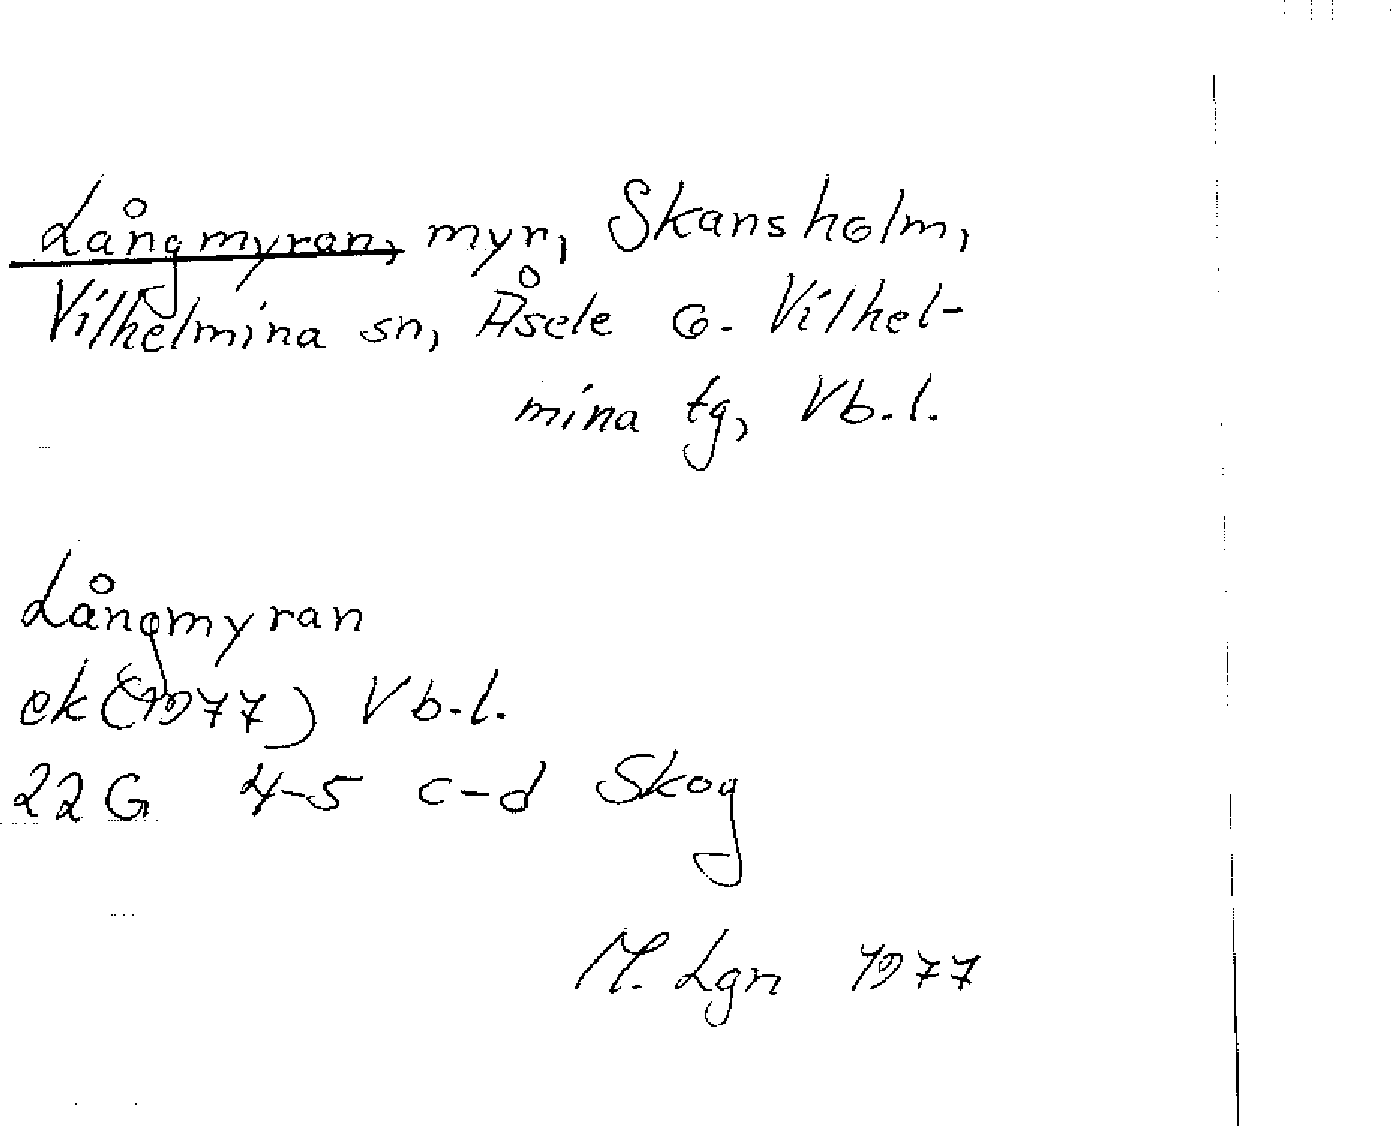 Långmyran, myr, Skansholm,
Vilhelmina sn, Åsele o. Vilhel-
mina tg, Vb.l.
Långmyran
ek (1977) Vb.l.
22 G 4-5 c-d Skog
M. Lgn 1977